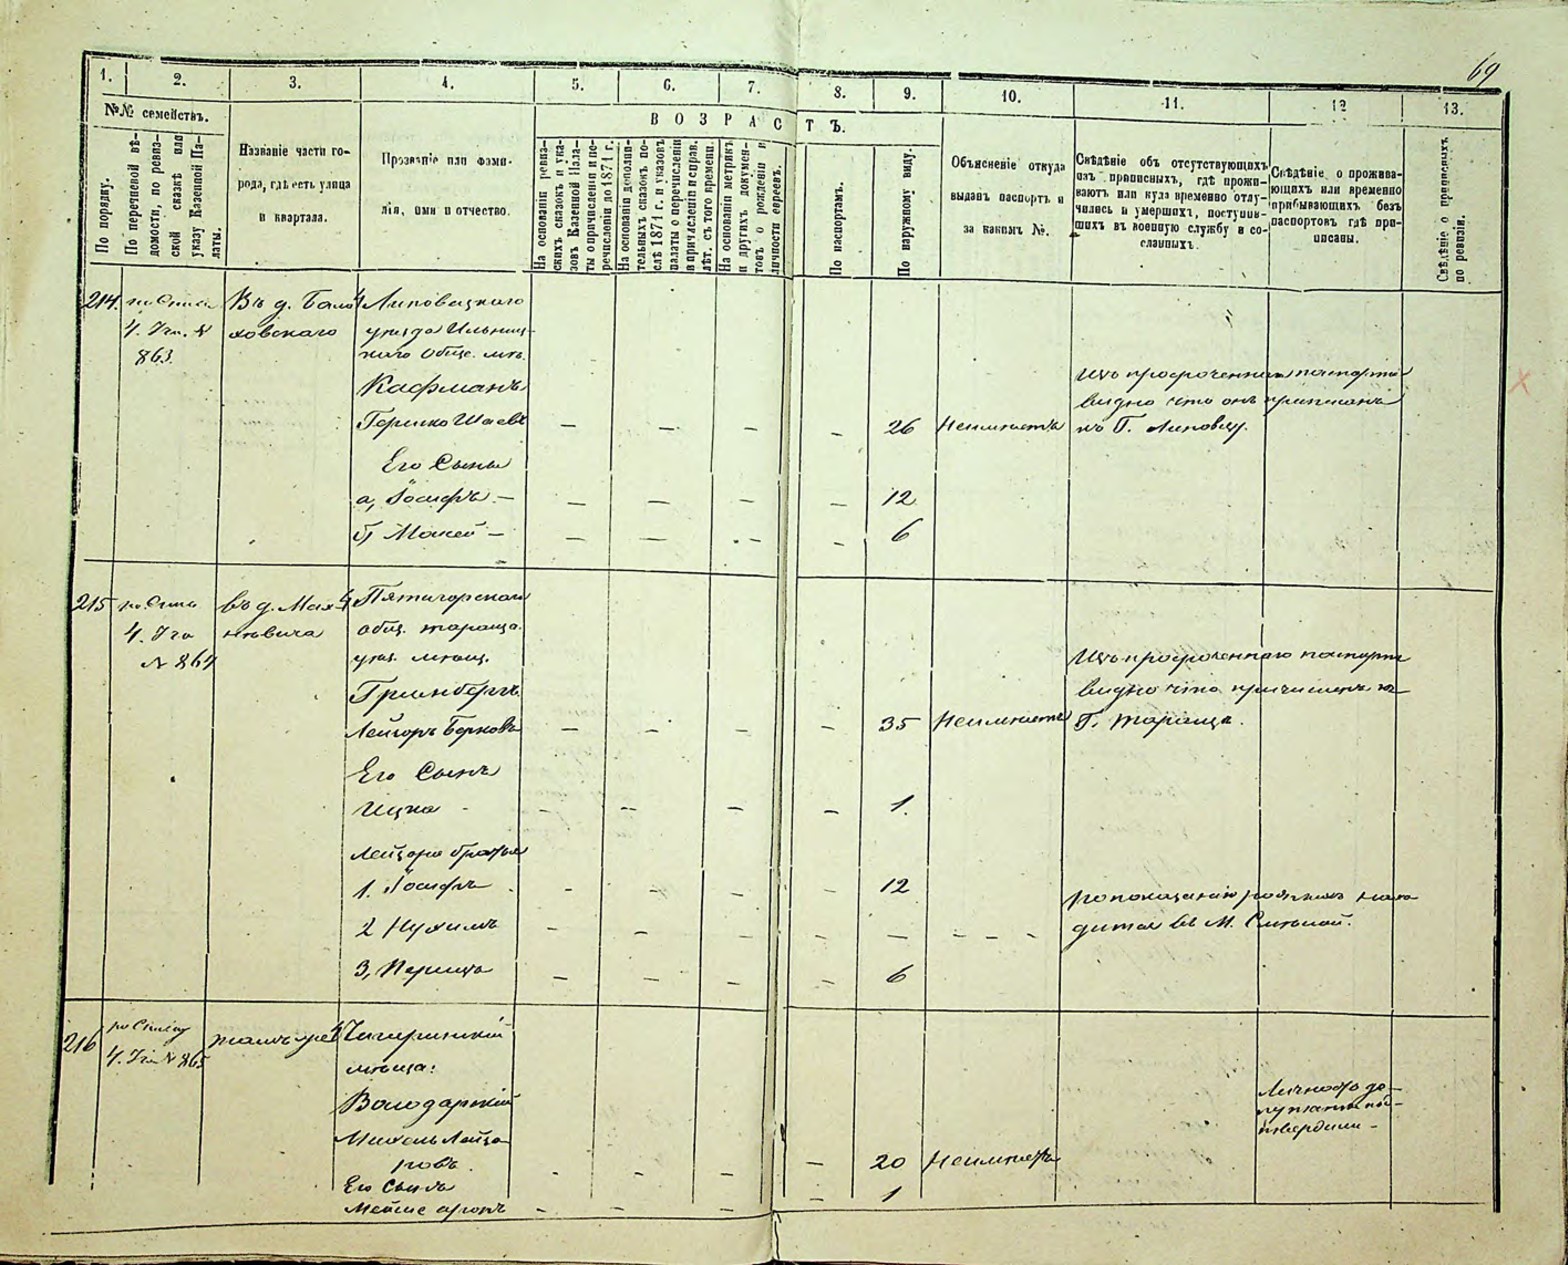 69
1. 2. 3. 4. 5. 6. 7. 8. 9. 10. 11. 12 13.
№№ семействъ.
По порядку.
По перечневой вѣ-
домости, по ревиз-
ской сказкѣ или
указу Казенной Па-
латы.
Названіе части го-
рода, гдѣ есть улица
и квартала.
Прозваніе или фами-
лія, имя и отчество.
ВОЗРАСТЪ.
На основаніи ревиз-
скихъ сказокъ и ука-
зовъ Казенной Пала-
ты о причисленіи и пе-
речисленіи до 1871 г.
На основаніи дополни-
тельныхъ сказокъ по-
слѣ 1871 г. и указовъ
палаты о перечисленіи
и причисленіи и справ.
лѣт. съ того времени.
На основаніи метрикъ
и другихъ докумен-
товъ о рожденіи и
личности евреевъ.
По паспортамъ.
По наружному виду.
Объясненіе откуда
выданъ паспортъ и
за какимъ №.
Свѣдѣніе объ отсутствующихъ
изъ приписныхъ, гдѣ прожи-
ваютъ или куда временно отлу-
чились и умершихъ, поступив-
шихъ въ военную службу и со-
сланныхъ.
Свѣдѣніе о прожива-
ющихъ или временно
прибывающихъ безъ
паспортовъ гдѣ при-
писаны.
Свѣдѣніе о приписныхъ
по ревизіи.
214.
по Списк.
4. Уча. №
863.
Въ д. Бала
ховскаго
Липовецкаго
уѣзда Ильинец-
каго Обще. мѣщ.
Кафманъ
Гершко Шаевъ — — — — 26 Неимѣетъ
Изъ просроченнаго паспорта
видно что онъ приписанъ
къ Г. Липовцу.
Его Сыны
а, Іосифъ — — — — 12
б, Мошей — — — — 6
215
по Спис
4. Уча
№ 864
въ д. Мах
новича
Пятигорскаго
общ. тараща.
уѣз. мѣщ.
Гринбергъ
Лейзоръ Берковъ — — — — 35 Неимѣетъ
Изъ просроченнаго паспорта
видно что причисленъ къ
Г. Тараща.
Его Сынъ
Ицко — — — — 1.
Лейзора братья
1. Іосифъ — — — — 12
2 Нухимъ — — — — — — — —
по показанію родныхъ нахо
дится въ М. Смѣлой.
3, Перицъ — — — — 6
216
по Списку
4. Уча № 865
тамъ же
Чигиринскій
мѣща:
Володарскій
Михель Лейзо
ровъ. — — — — 20 Неимѣетъ
Личность де-
путаты под-
твердили —
Его Сынъ — 1
Мейше аронъ — — —